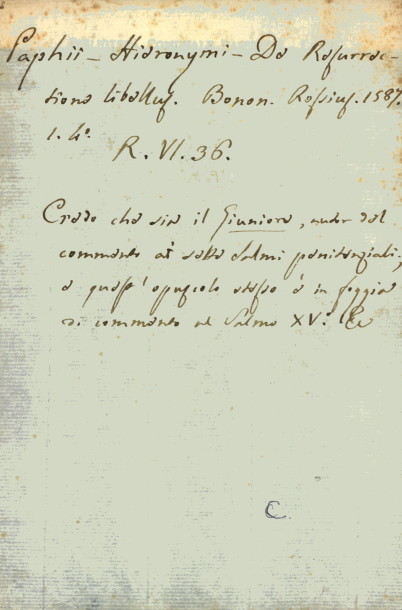 Paphii – Hieronymi – De Resurrec-
tione libellus. Bonon. Rossius. 1587.
1. 4°.
R. VI. 36.
Credo che sia il Giuniore, autor del
commento ai sette Salmi penitenziali;
e quest' opuscolo stesso è in foggia
di commento al Salmo XV.°
C.